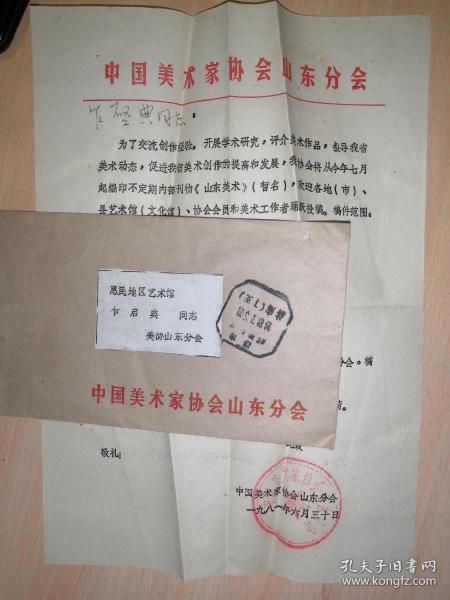 中国美术家协会山东分会
乍启典同志：
为了交流创作经验。开展学术研究，评介美术作品，报导我省
美术动态，促进我省美术创作的提高和发展，我协会将从今年七月
起编印不定期内部刊物《山东美术》（暂名），欢迎各地（市）、
县艺术馆（文化馆）、协会会员和美术工作者踊跃投稿。稿件范围：
惠民地区艺术馆
乍启典 同志
美协山东分会
中国美术家协会山东分会
分会。稿
此致
敬礼
中国美术家协会山东分会
一九八一年六月三十日
孔夫子旧书网
www.kongfz.com